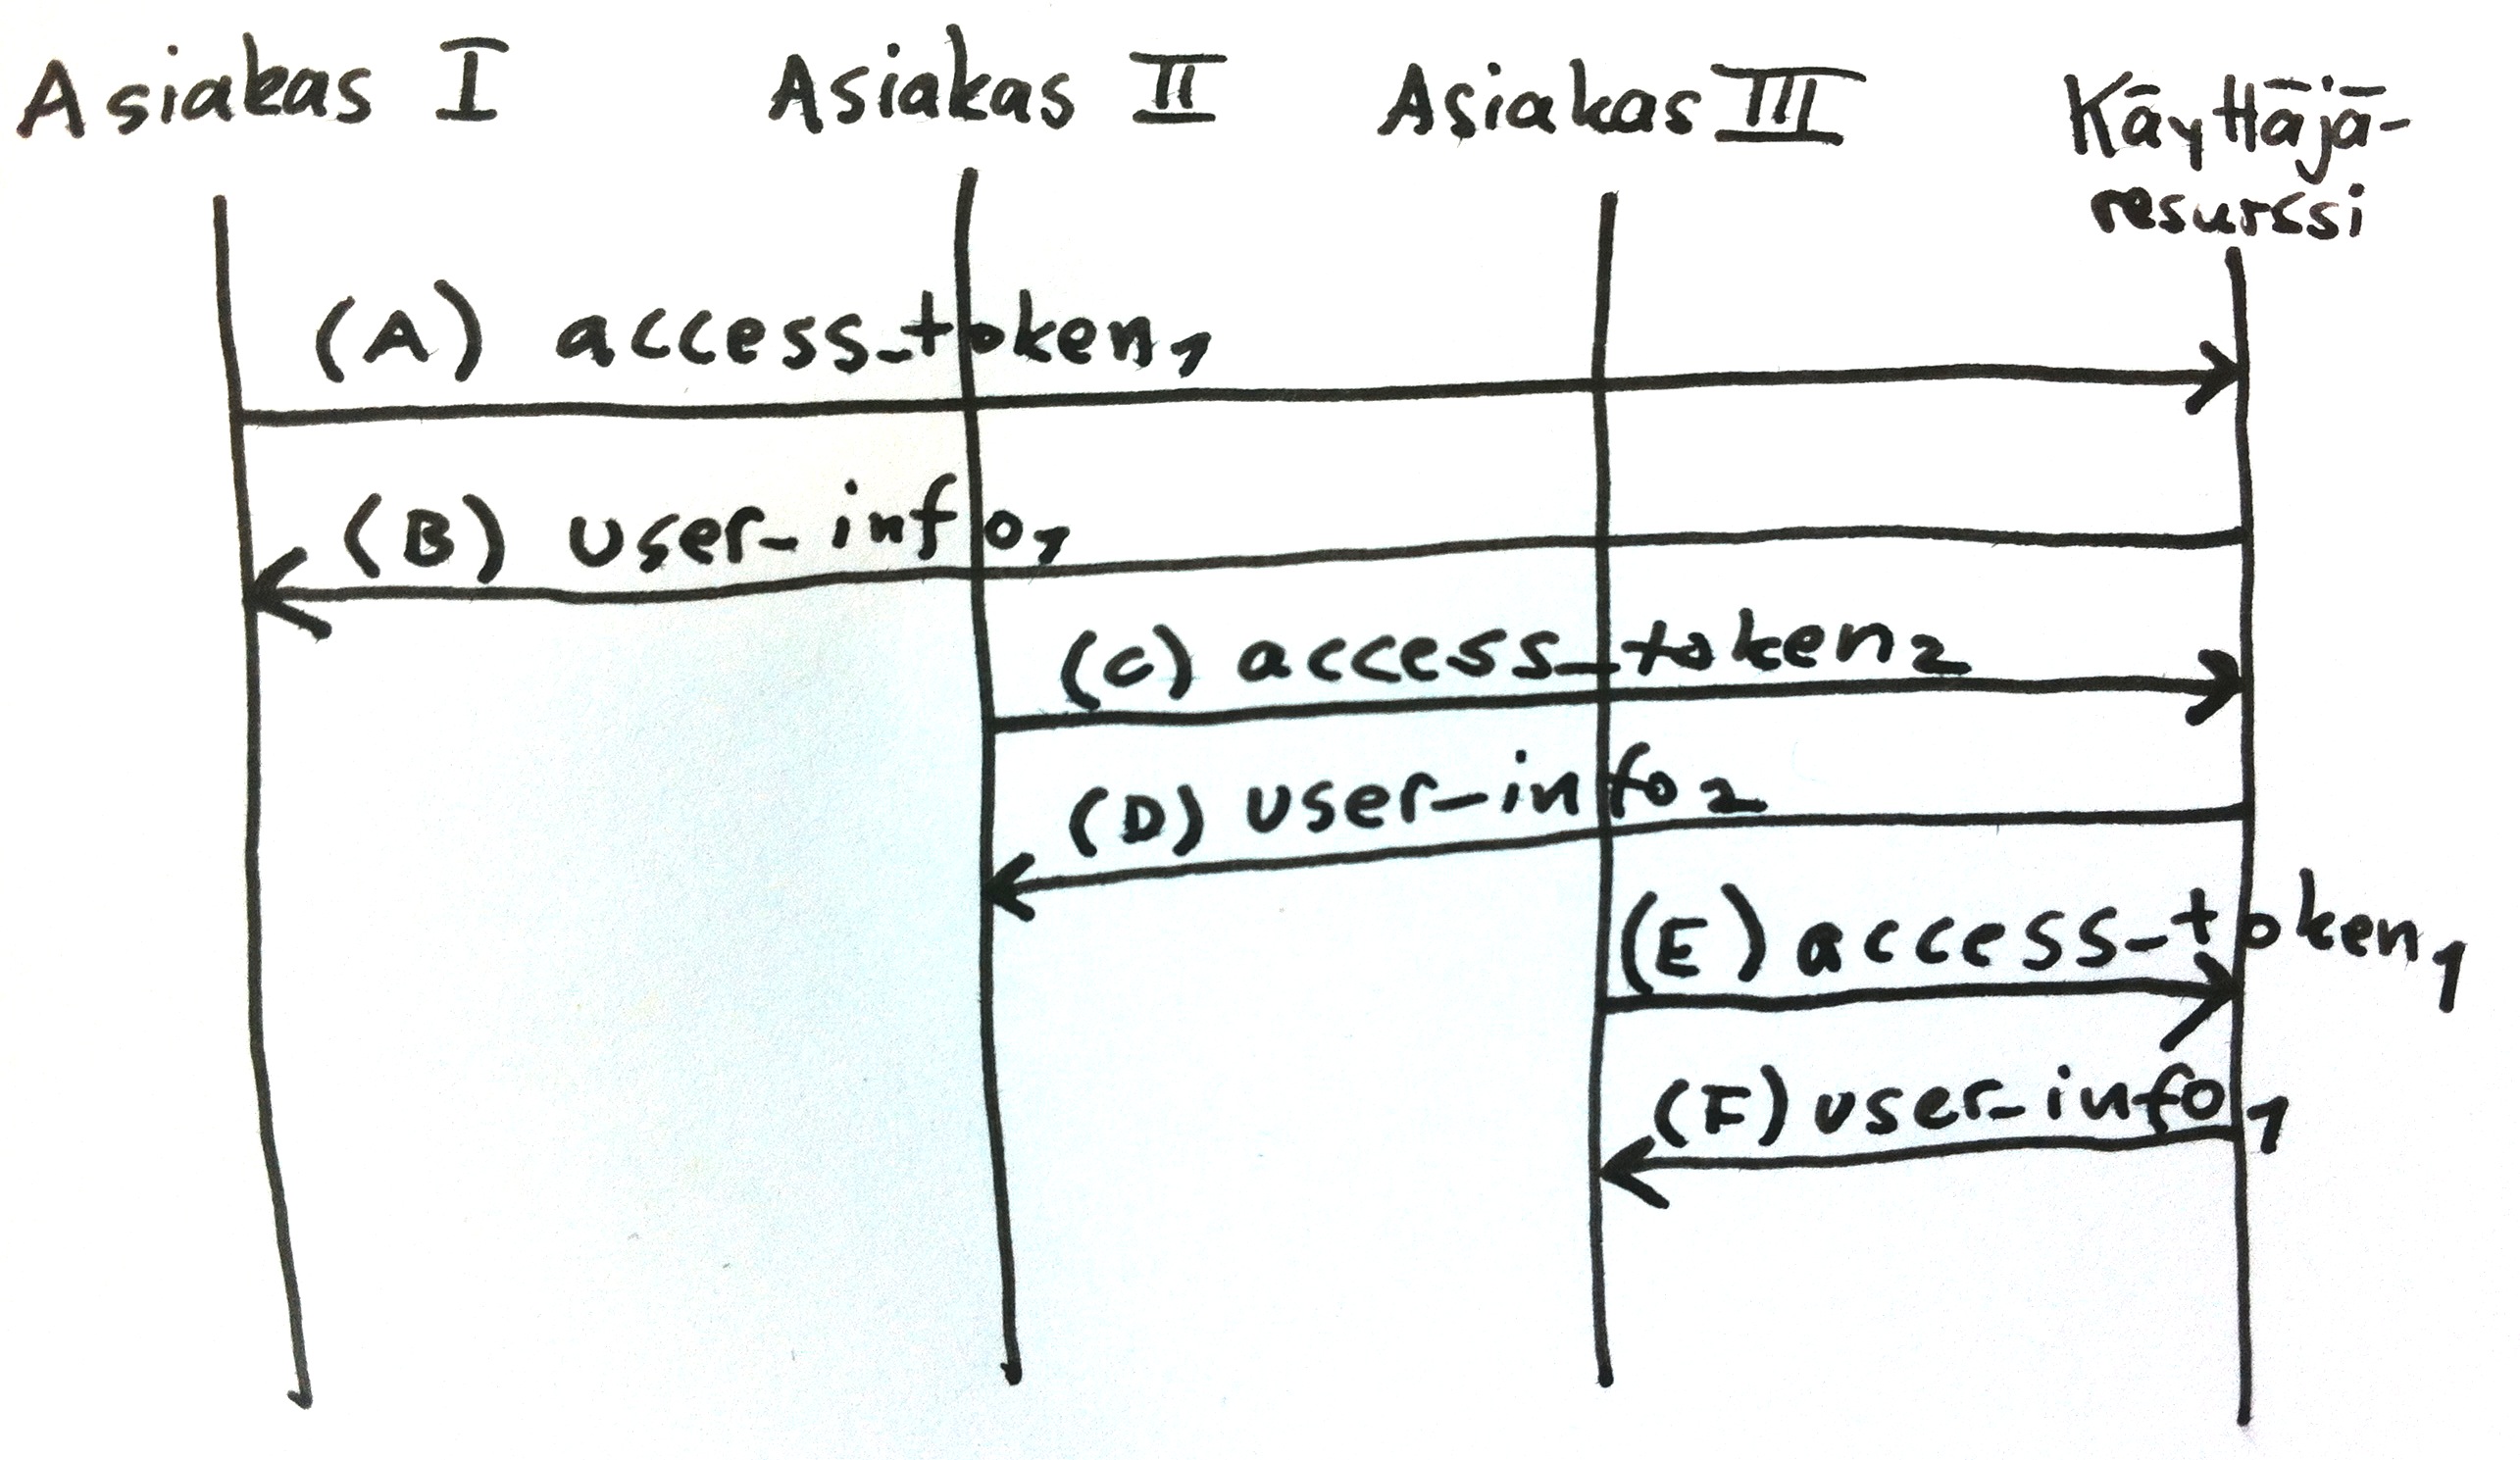 Asiakas I
Asiakas II
Asiakas III
Käyttäjä-
resurssi
(A) access_token₁
(B) user_info₁
(C) access_token₂
(D) user_info₂
(E) access_token₁
(F) user_info₁